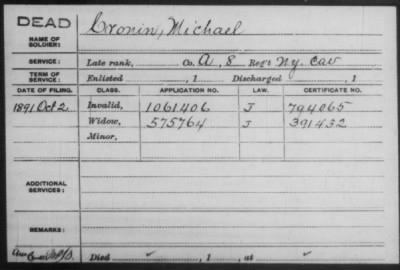 DEAD
NAME OF SOLDIER: Cronin, Michael
SERVICE: Late rank, Co. A, 8 Reg't N.Y. Cav
TERM OF SERVICE: Enlisted , 1 Discharged , 1
DATE OF FILING. CLASS. APPLICATION NO. LAW. CERTIFICATE NO.
1891 Oct 2 Invalid, 1061406 J 794065
Widow, 575764 J 391432
Minor,
ADDITIONAL SERVICES:
REMARKS:
Died ✓ , 1 , at ✓